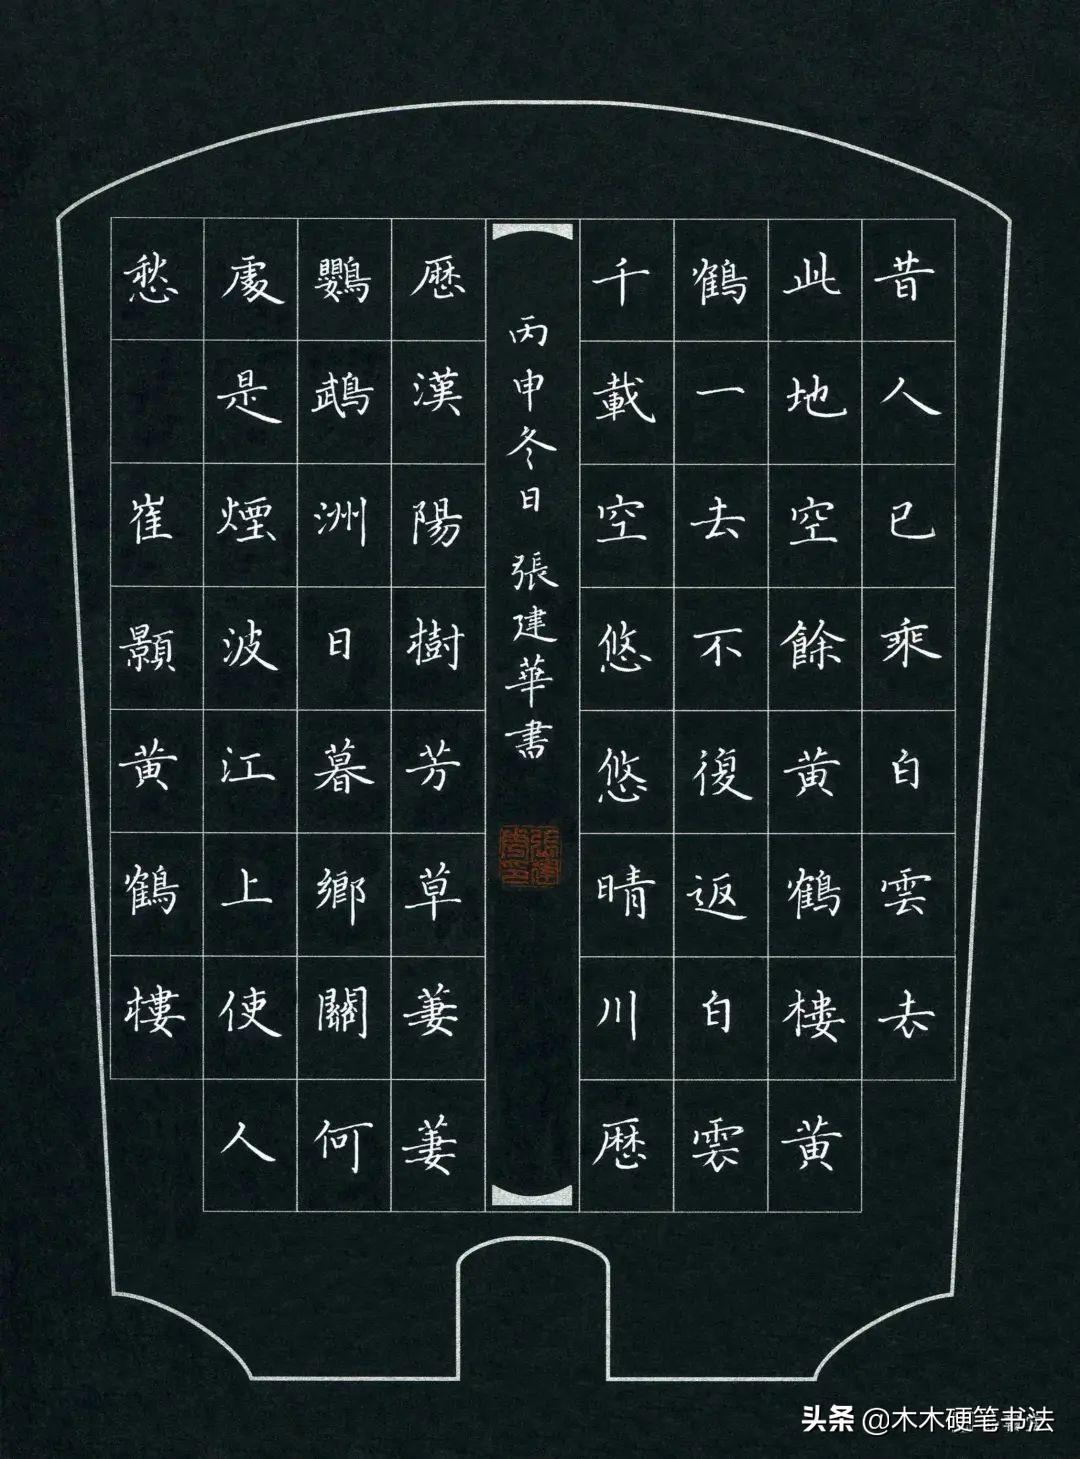 昔人已乘白雲去
此地空餘黄鶴樓黄
鶴一去不復返白雲
千載空悠悠晴川歷
丙申冬日 張建華書
張建華印
歷漢陽樹芳草萋萋
鸚鵡洲日暮鄉關何
處是煙波江上使人
愁 崔顥黄鶴樓
头条 @木木硬笔书法